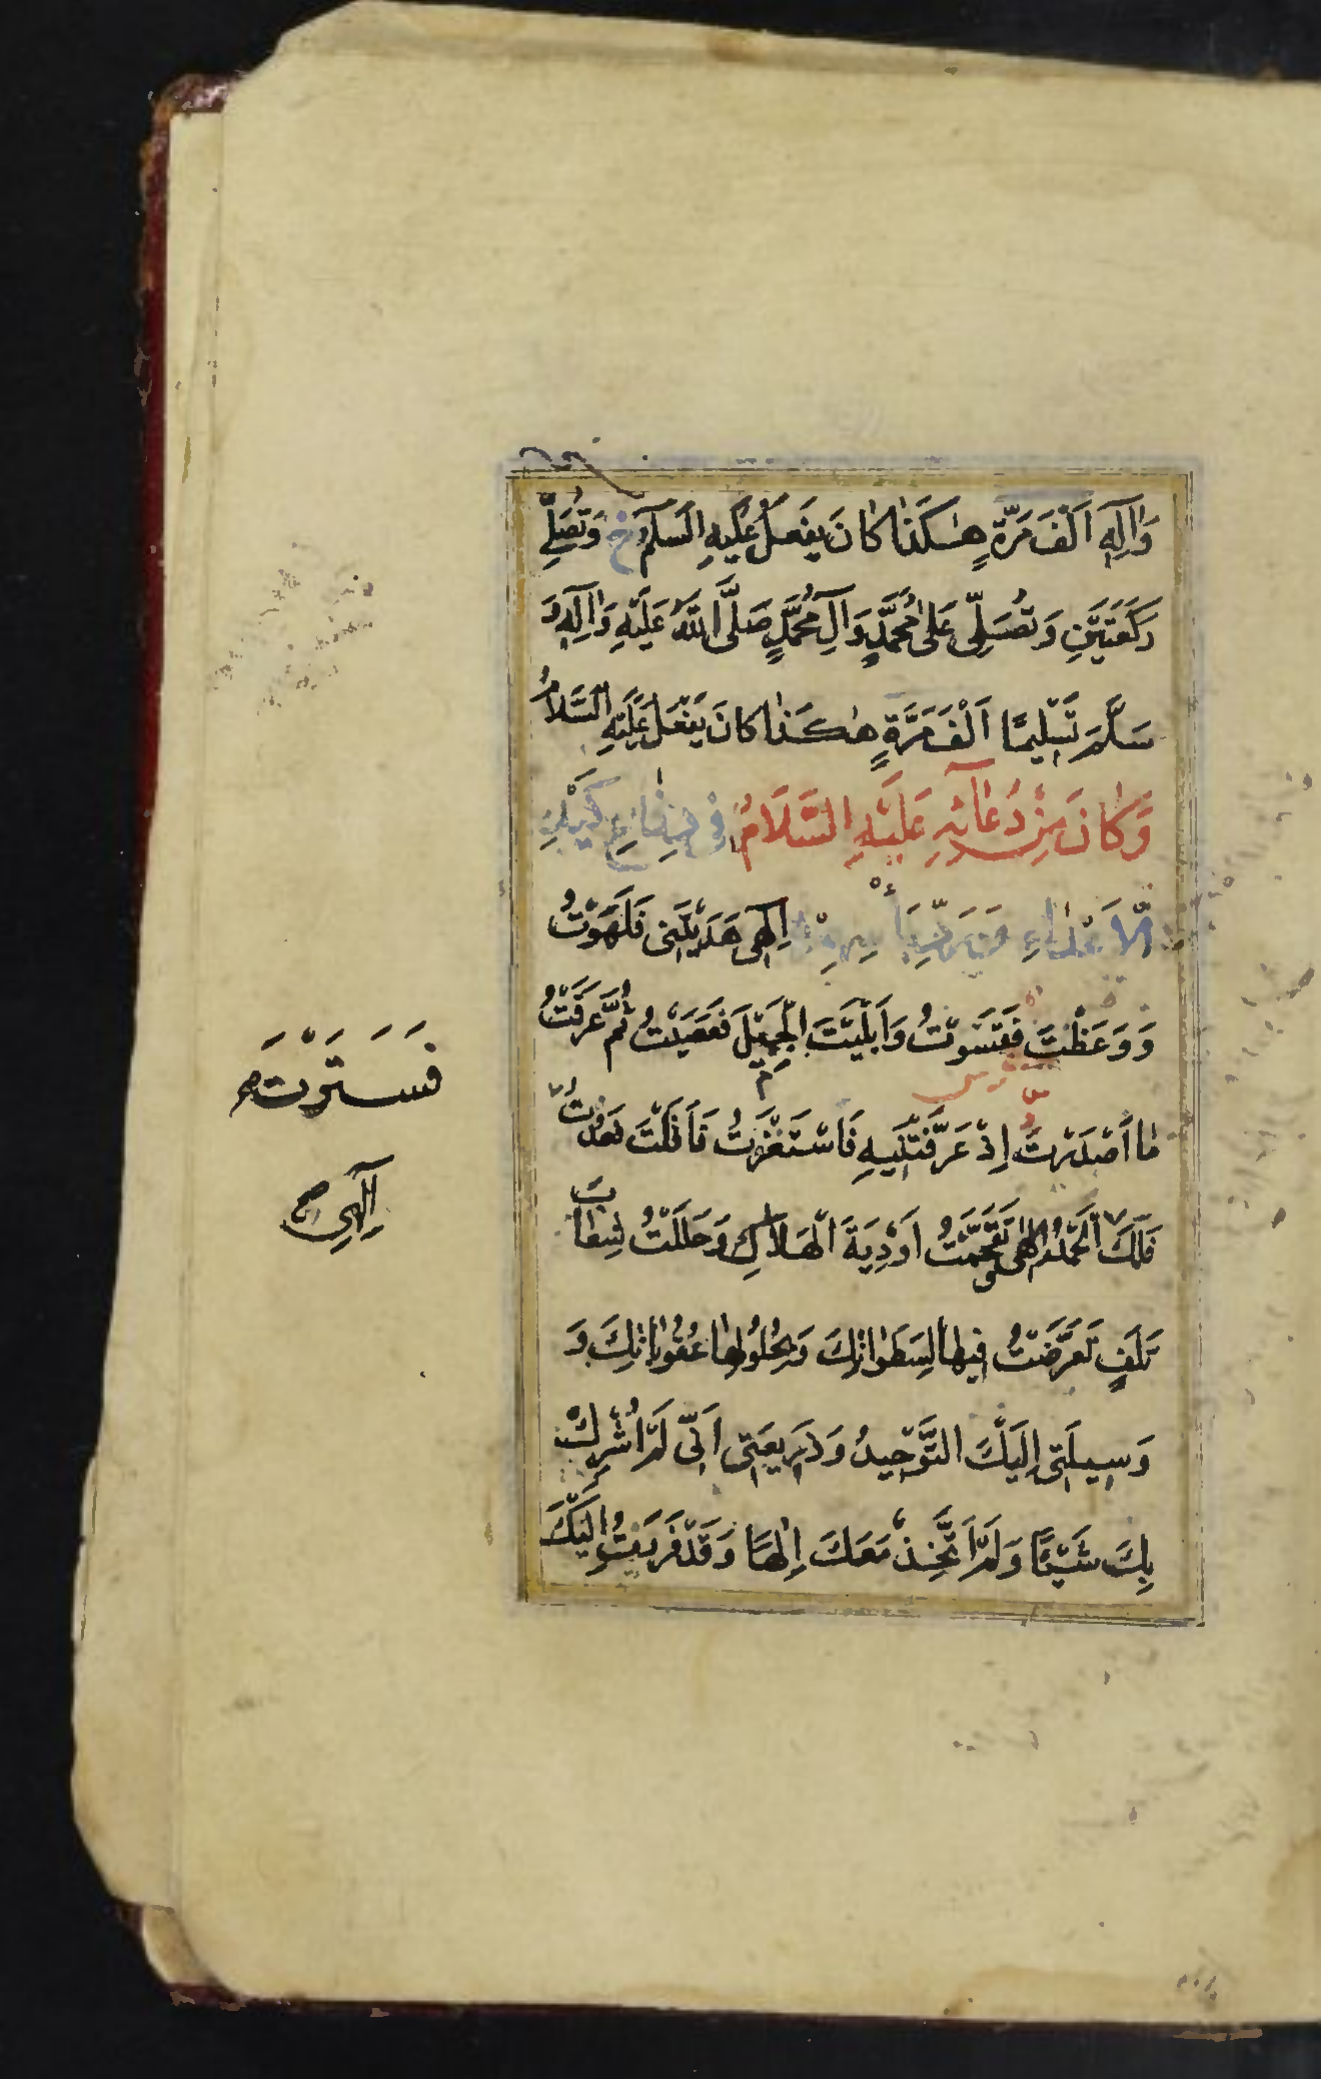 وَاٰلِهِ اَلْفَ مَرَّةٍ هٰكَذٰا كٰانَ يَفْعَلُ عَلَيْهِ السَّلٰمُ خ وَتُصَلِّے
رَكْعَتَيْنِ وَتُصَلِّى عَلىٰ مُحَمَّدٍ وَاٰلِ مُحَمَّدٍ صَلَّى اللّٰهُ عَلَيْهِ وَاٰلِهِ وَ
سَلَّمَ تَسْلِيمًا اَلْفَ مَرَّةٍ هٰكَذٰا كانَ يَفْعَلُ عَلَيْهِ السَّلامُ
وَكٰانَ مِنْ دُعٰآئِهِ عَلَيْهِ السَّلَامُ فِى دِفٰاعِ كَيْدِ
الْاَعْدٰاءِ وَرَدِّ بَأْسِهِمْ اِلٰهِى هَدَيْتَنِى فَلَهَوْتُ
وَوَعَظْتَ فَقَسَوْتُ وَاَبْلَيْتَ الْجَمِيْلَ فَعَصَيْتُ ثُمَّ عَرَفْتُ
مٰا اَصْدَرْتَ اِذْ عَرَّفْتَنِيهِ فَاسْتَغْفَرْتُ فَاَقَلْتَ فَعُدْتُ
فَلَكَ الْحَمْدُ اِلٰهِى تَقَحَّمْتُ اَوْدِيَةَ الْهَلاٰكِ وَحَلَلْتُ شِعٰابَ
تَلَفٍ تَعَرَّضْتُ فِيهٰا لِسَطَوٰاتِكَ وَبِحُلُولِهٰا عُقُوبٰاتِكَ وَ
وَسِيلَتِى اِلَيْكَ التَّوْحِيدُ وَذَرِيعَتِى اَنِّى لَمْ اُشْرِكْ
بِكَ شَيْئًا وَلَمْ اَتَّخِذْ مَعَكَ اِلٰهًا وَقَدْ فَرَرْتُ اِلَيْكَ
فَسَتَرْتَ
اِلٰهِى